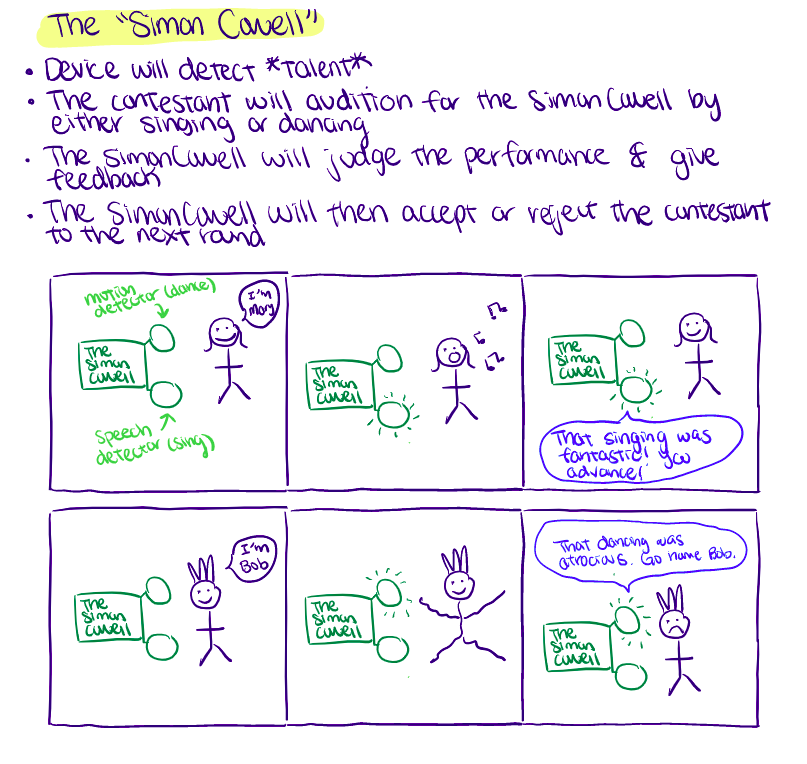 The "Simon Cowell"
• Device will detect *Talent*
• The contestant will audition for the Simon Cowell by
either singing or dancing
• The SimonCowell will judge the performance & give
feedback
• The SimonCowell will then accept or reject the contestant
to the next round
motion
detector (dance)
I'm
Mary
The
Simon
Cowell
Speech
detector (sing)
The
Simon
Cowell
The
Simon
Cowell
That singing was
fantastic! You
advance!
I'm
Bob
The
Simon
Cowell
The
Simon
Cowell
That dancing was
atrocious. Go home Bob.
The
Simon
Cowell